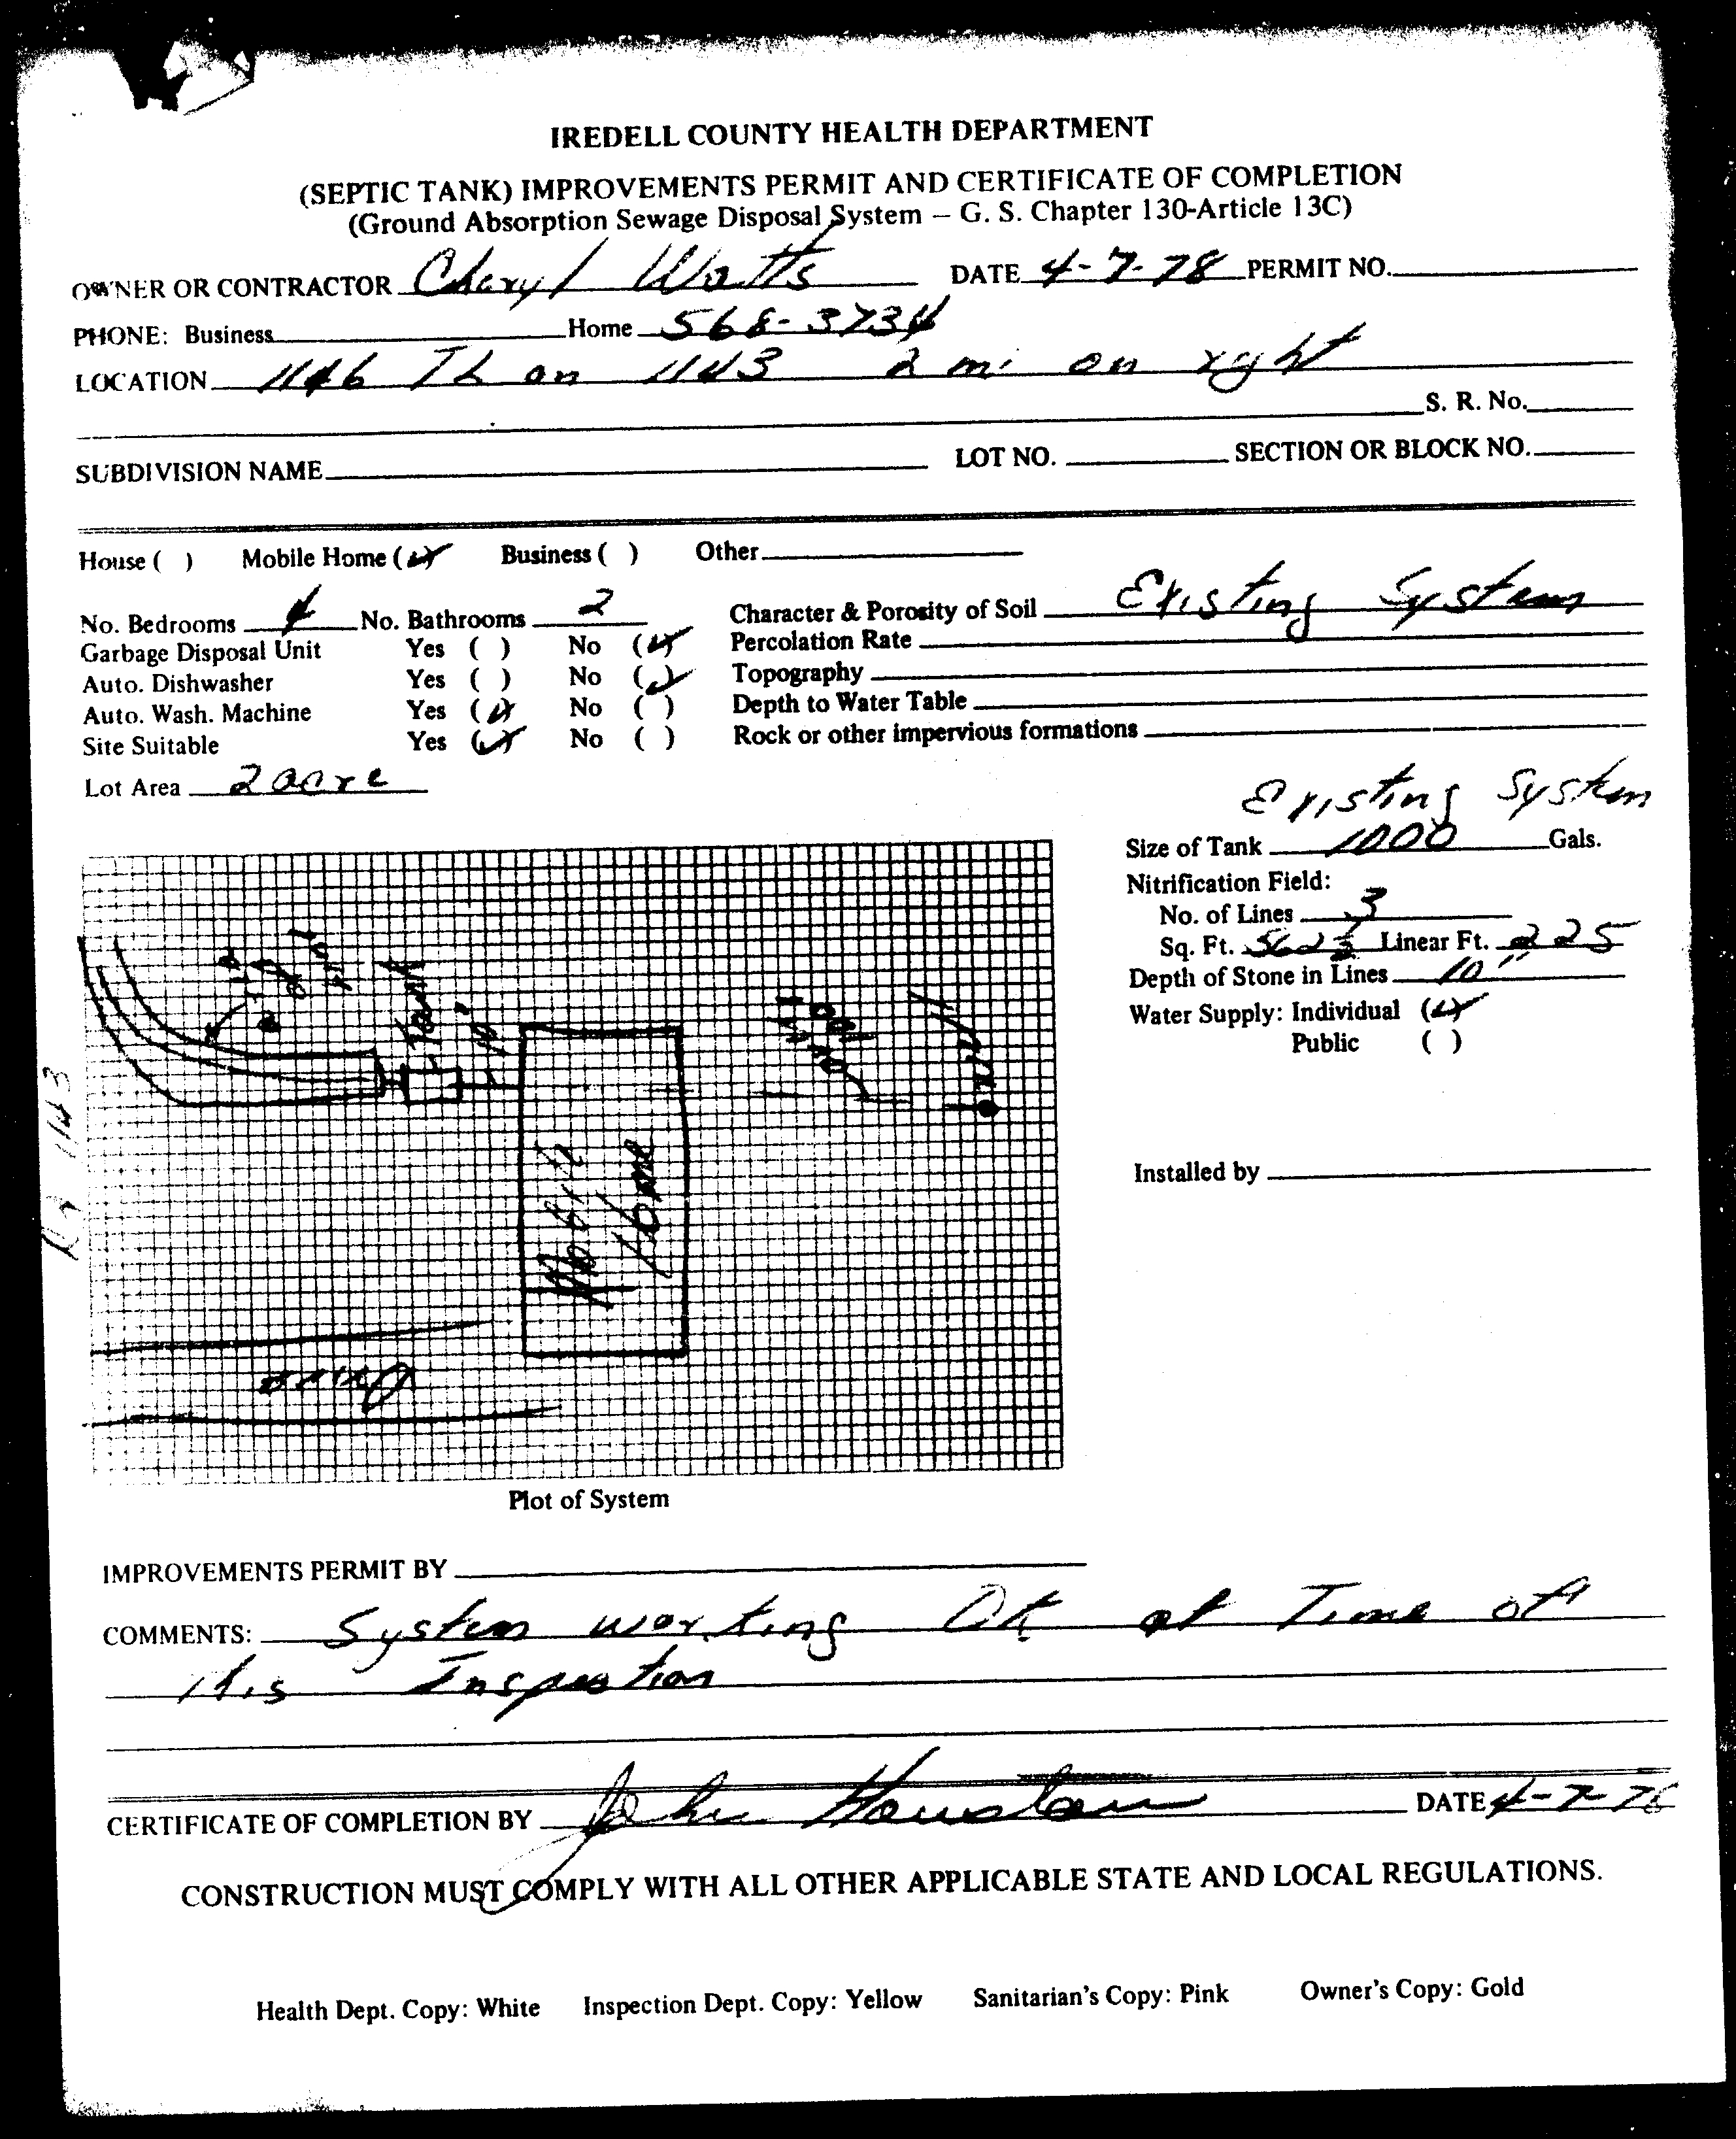 IREDELL COUNTY HEALTH DEPARTMENT
(SEPTIC TANK) IMPROVEMENTS PERMIT AND CERTIFICATE OF COMPLETION
(Ground Absorption Sewage Disposal System – G. S. Chapter 130-Article 13C)
OWNER OR CONTRACTOR Cheryl Watts DATE 4-7-78 PERMIT NO.
PHONE: Business Home 568-3734
LOCATION 1146 TL on 1143 2 mi on right
S. R. No.
SUBDIVISION NAME LOT NO. SECTION OR BLOCK NO.
House ( ) Mobile Home (✓) Business ( ) Other
No. Bedrooms 4 No. Bathrooms 2 Character & Porosity of Soil Existing System
Garbage Disposal Unit Yes ( ) No (✓) Percolation Rate
Auto. Dishwasher Yes ( ) No (✓) Topography
Auto. Wash. Machine Yes (✓) No ( ) Depth to Water Table
Site Suitable Yes (✓) No ( ) Rock or other impervious formations
Lot Area 2 acre
Existing System
Size of Tank 1000 Gals.
Nitrification Field:
No. of Lines 3
Sq. Ft. 562½ Linear Ft. 225
Depth of Stone in Lines 10"
Water Supply: Individual (✓)
Public ( )
Installed by
Tank
10'
Mobile
Home
100'
Well
Rd 1143
Drive
Plot of System
IMPROVEMENTS PERMIT BY
COMMENTS: System working OK at Time of
this Inspection
CERTIFICATE OF COMPLETION BY John Houston DATE 4-7-78
CONSTRUCTION MUST COMPLY WITH ALL OTHER APPLICABLE STATE AND LOCAL REGULATIONS.
Health Dept. Copy: White Inspection Dept. Copy: Yellow Sanitarian's Copy: Pink Owner's Copy: Gold